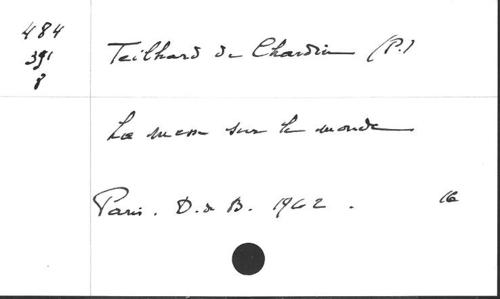 484
391
8
Teilhard de Chardin (P.)
La messe sur le monde
Paris. D. de B. 1962.
16